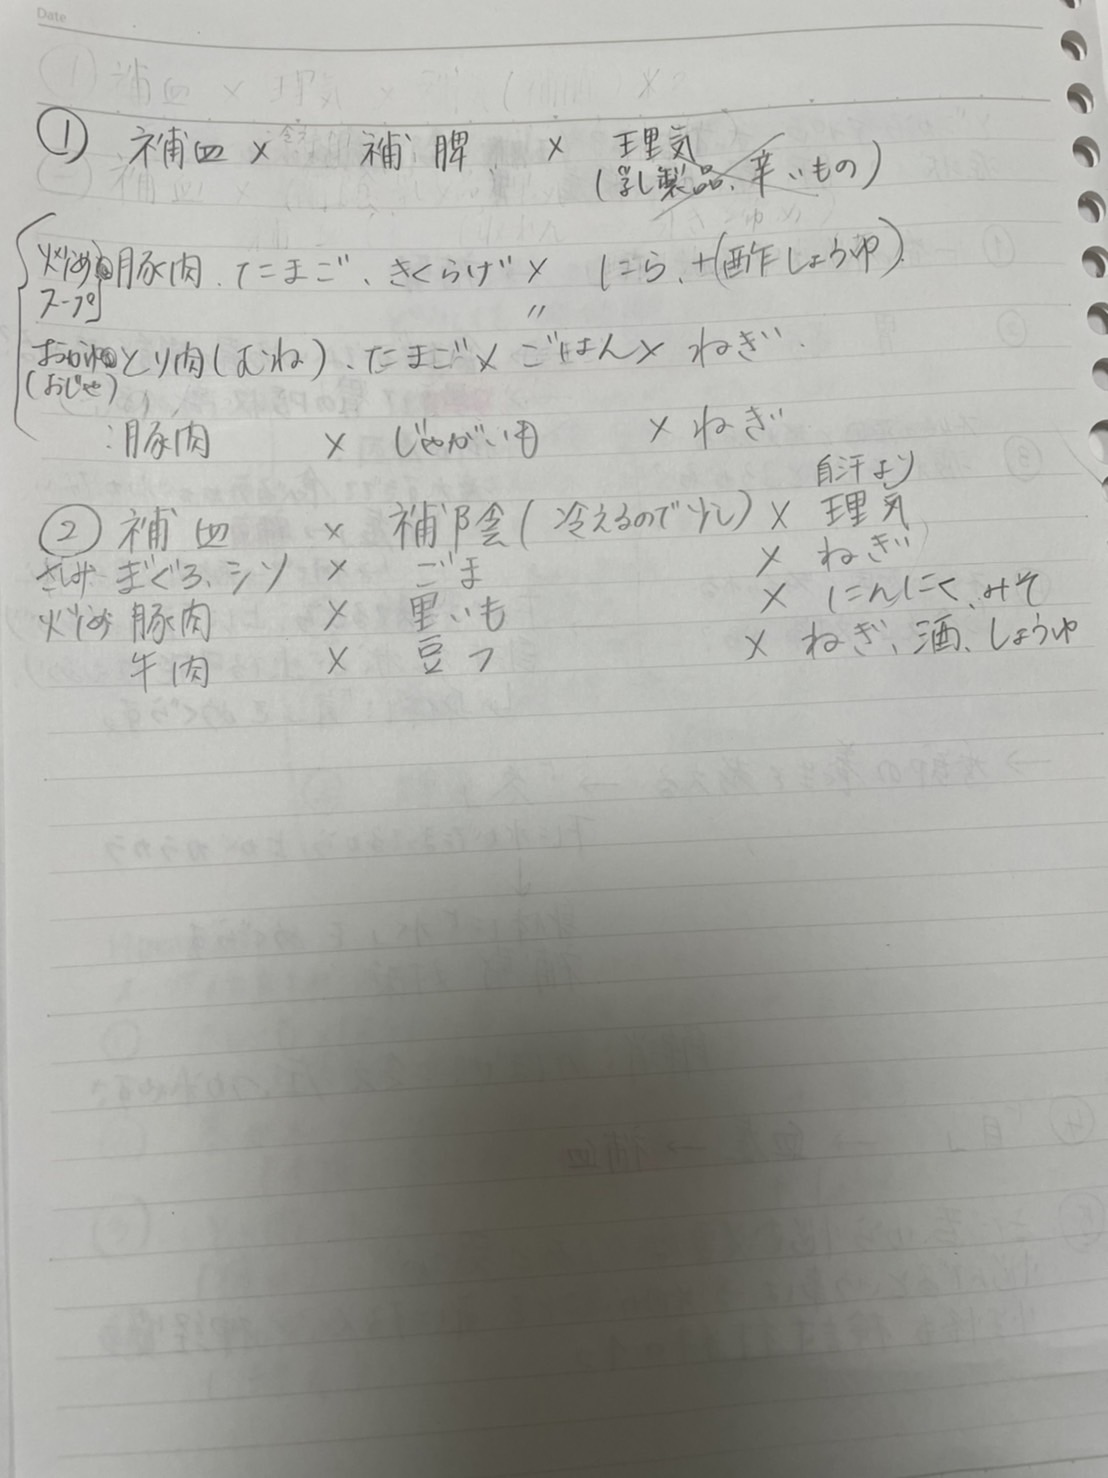 Date
① 補血 × 補脾 × 理気
(乳製品、辛いもの)
炒め 豚肉、たまご、きくらげ × にら、+(酢しょうゆ)
スープ 〃
おかゆ とり肉(むね)、たまご × ごはん × ねぎ
(おじや)
:豚肉 × じゃがいも × ねぎ
自汗より
② 補血 × 補陰(冷えるので少し) × 理気
さしみ まぐろ、シソ × ごま × ねぎ
炒め 豚肉 × 里いも × にんにく、みそ
牛肉 × 豆フ × ねぎ、酒、しょうゆ